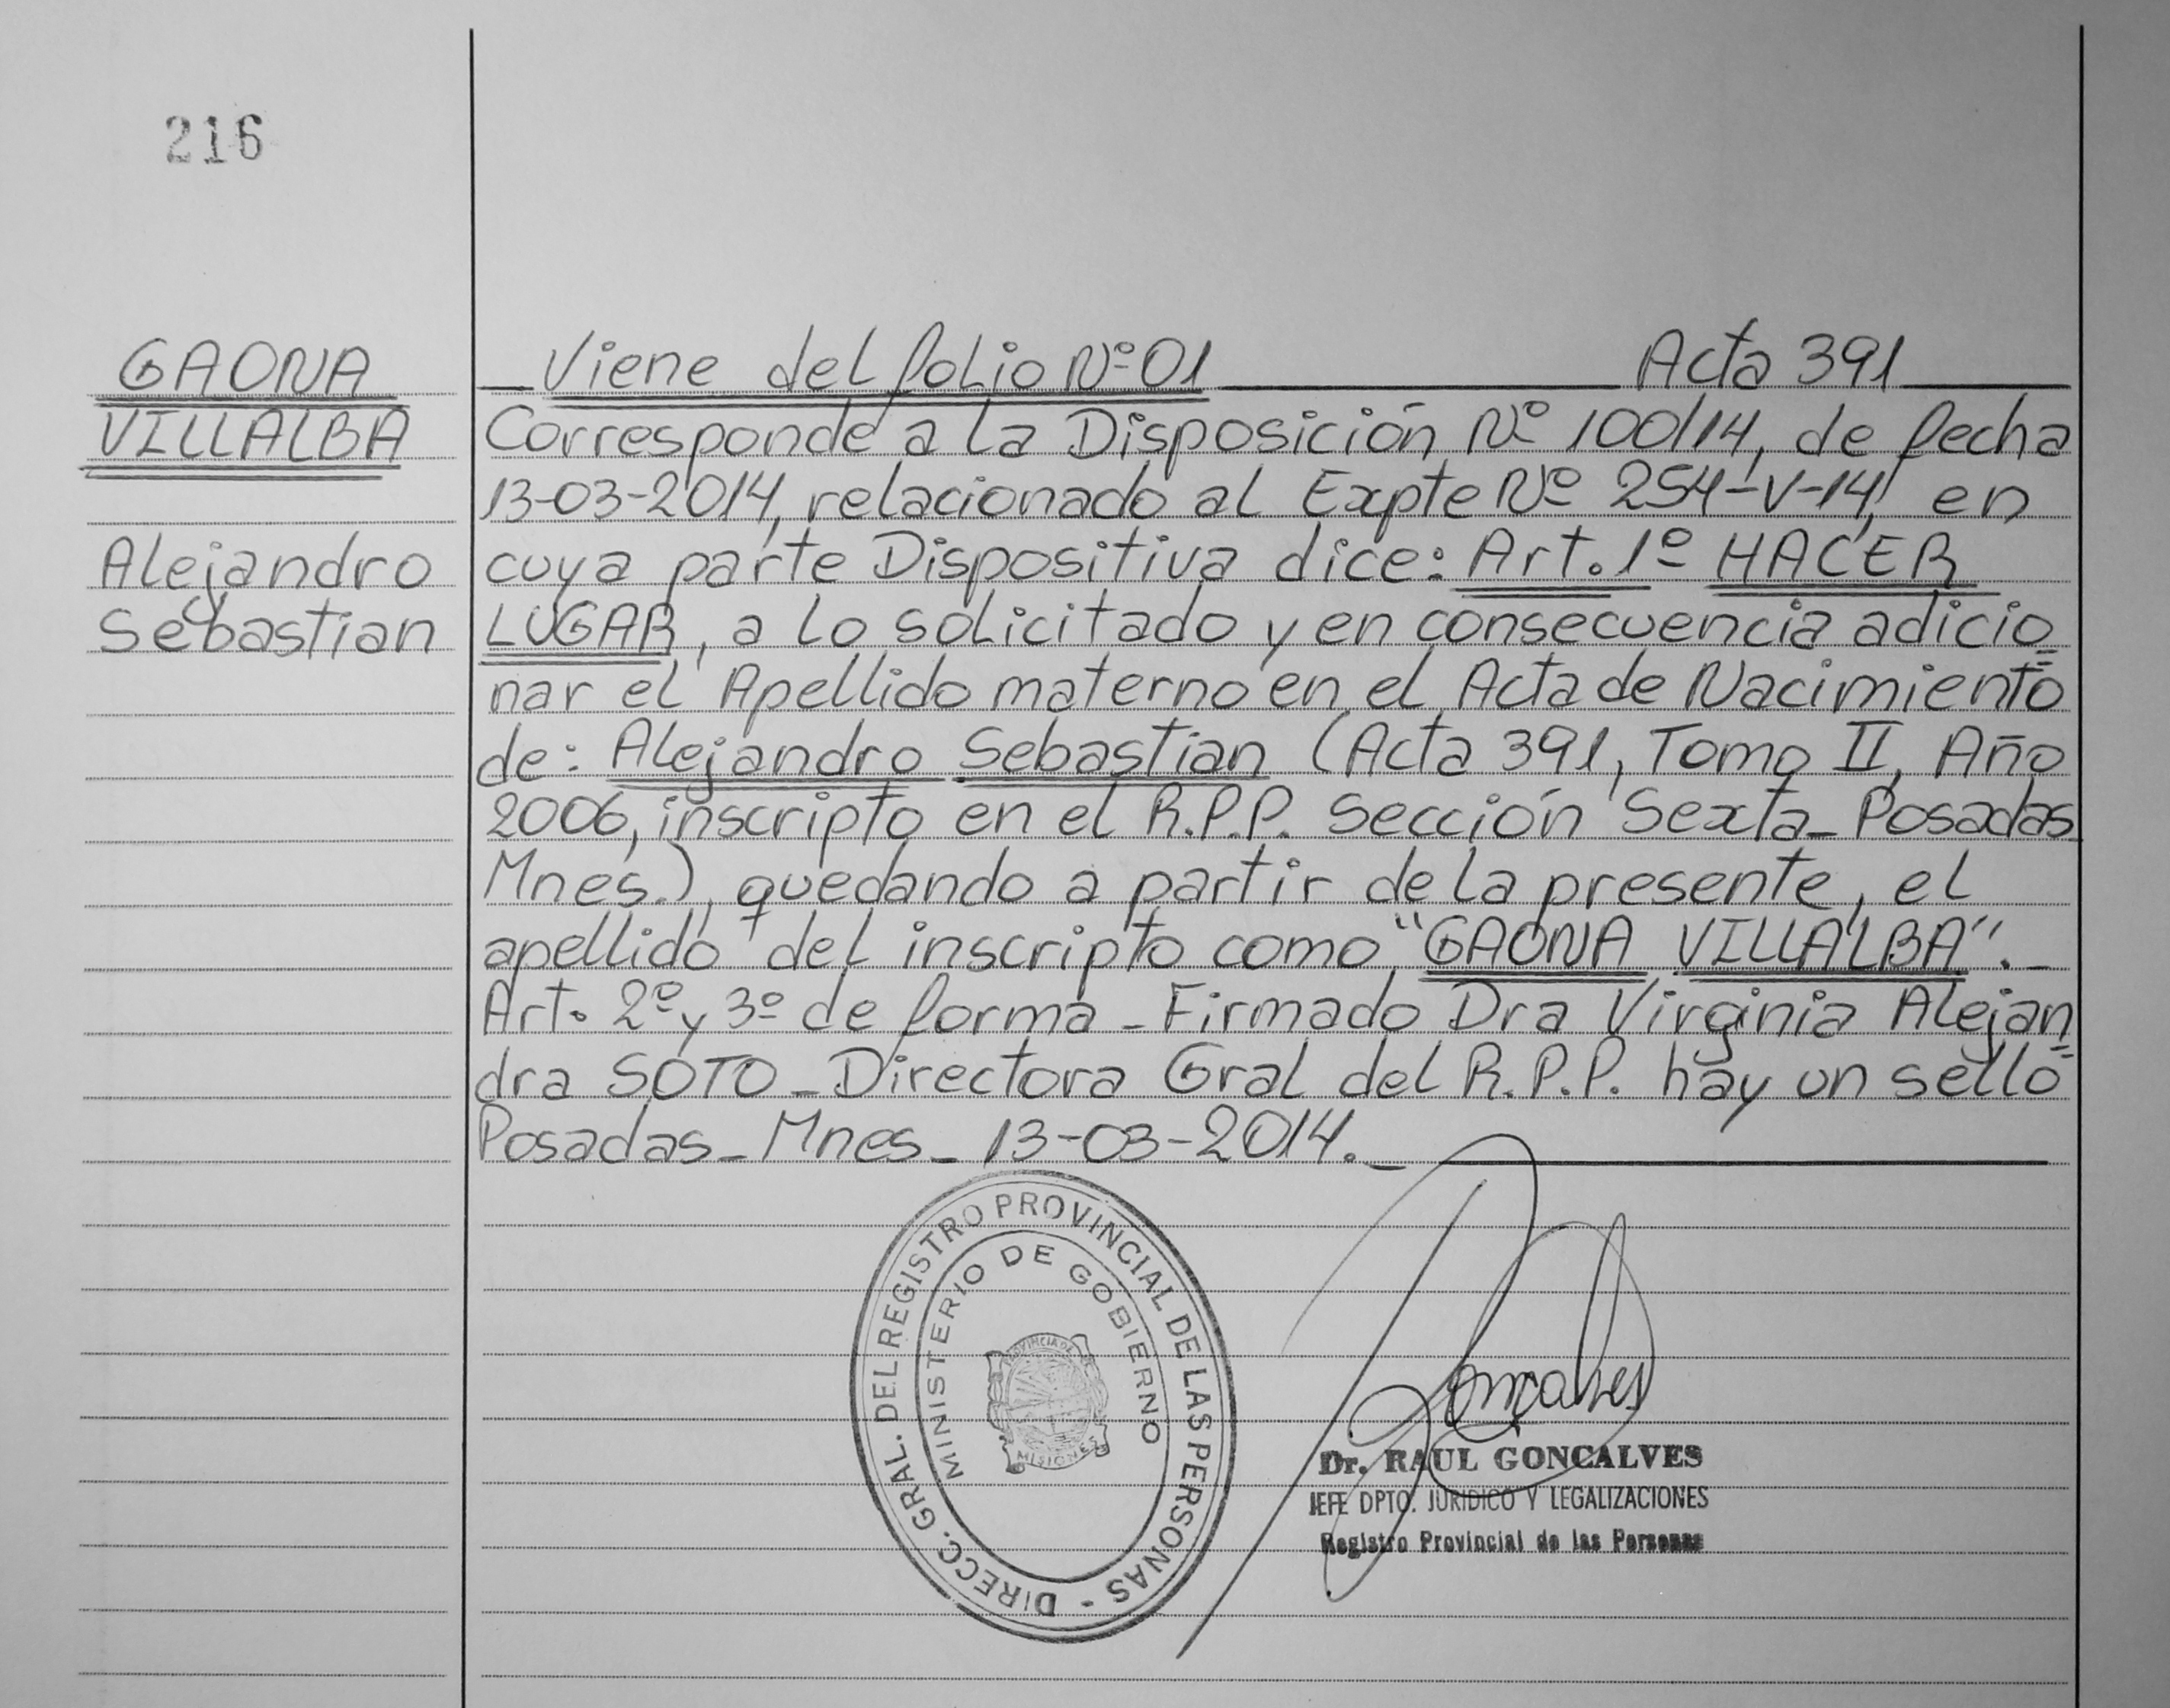 216
GAONA
VILLALBA
Alejandro
Sebastian
Viene del folio Nº 01 Acta 391
Corresponde a la Disposición Nº 100/14, de fecha
13-03-2014, relacionado al Expte Nº 254-V-14, en
cuya parte Dispositiva dice: Art. 1º HACER
LUGAR, a lo solicitado y en consecuencia adicio=
nar el Apellido materno en el Acta de Nacimiento
de: Alejandro Sebastian (Acta 391, Tomo II, Año
2006, inscripto en el R.P.P. Sección Sexta_ Posadas
Mnes.), quedando a partir de la presente, el
apellido del inscripto como "GAONA VILLALBA"._
Art. 2º y 3º de forma _ Firmado Dra Virginia Alejan=
dra SOTO _ Directora Gral del R.P.P. hay un sello
Posadas_ Mnes_ 13-03-2014._
DIRECC. GRAL. DEL REGISTRO PROVINCIAL DE LAS PERSONAS -
MINISTERIO DE GOBIERNO
PROVINCIA DE
MISIONES
Goncalves
Dr. RAUL GONCALVES
JEFE DPTO. JURIDICO Y LEGALIZACIONES
Registro Provincial de las Personas